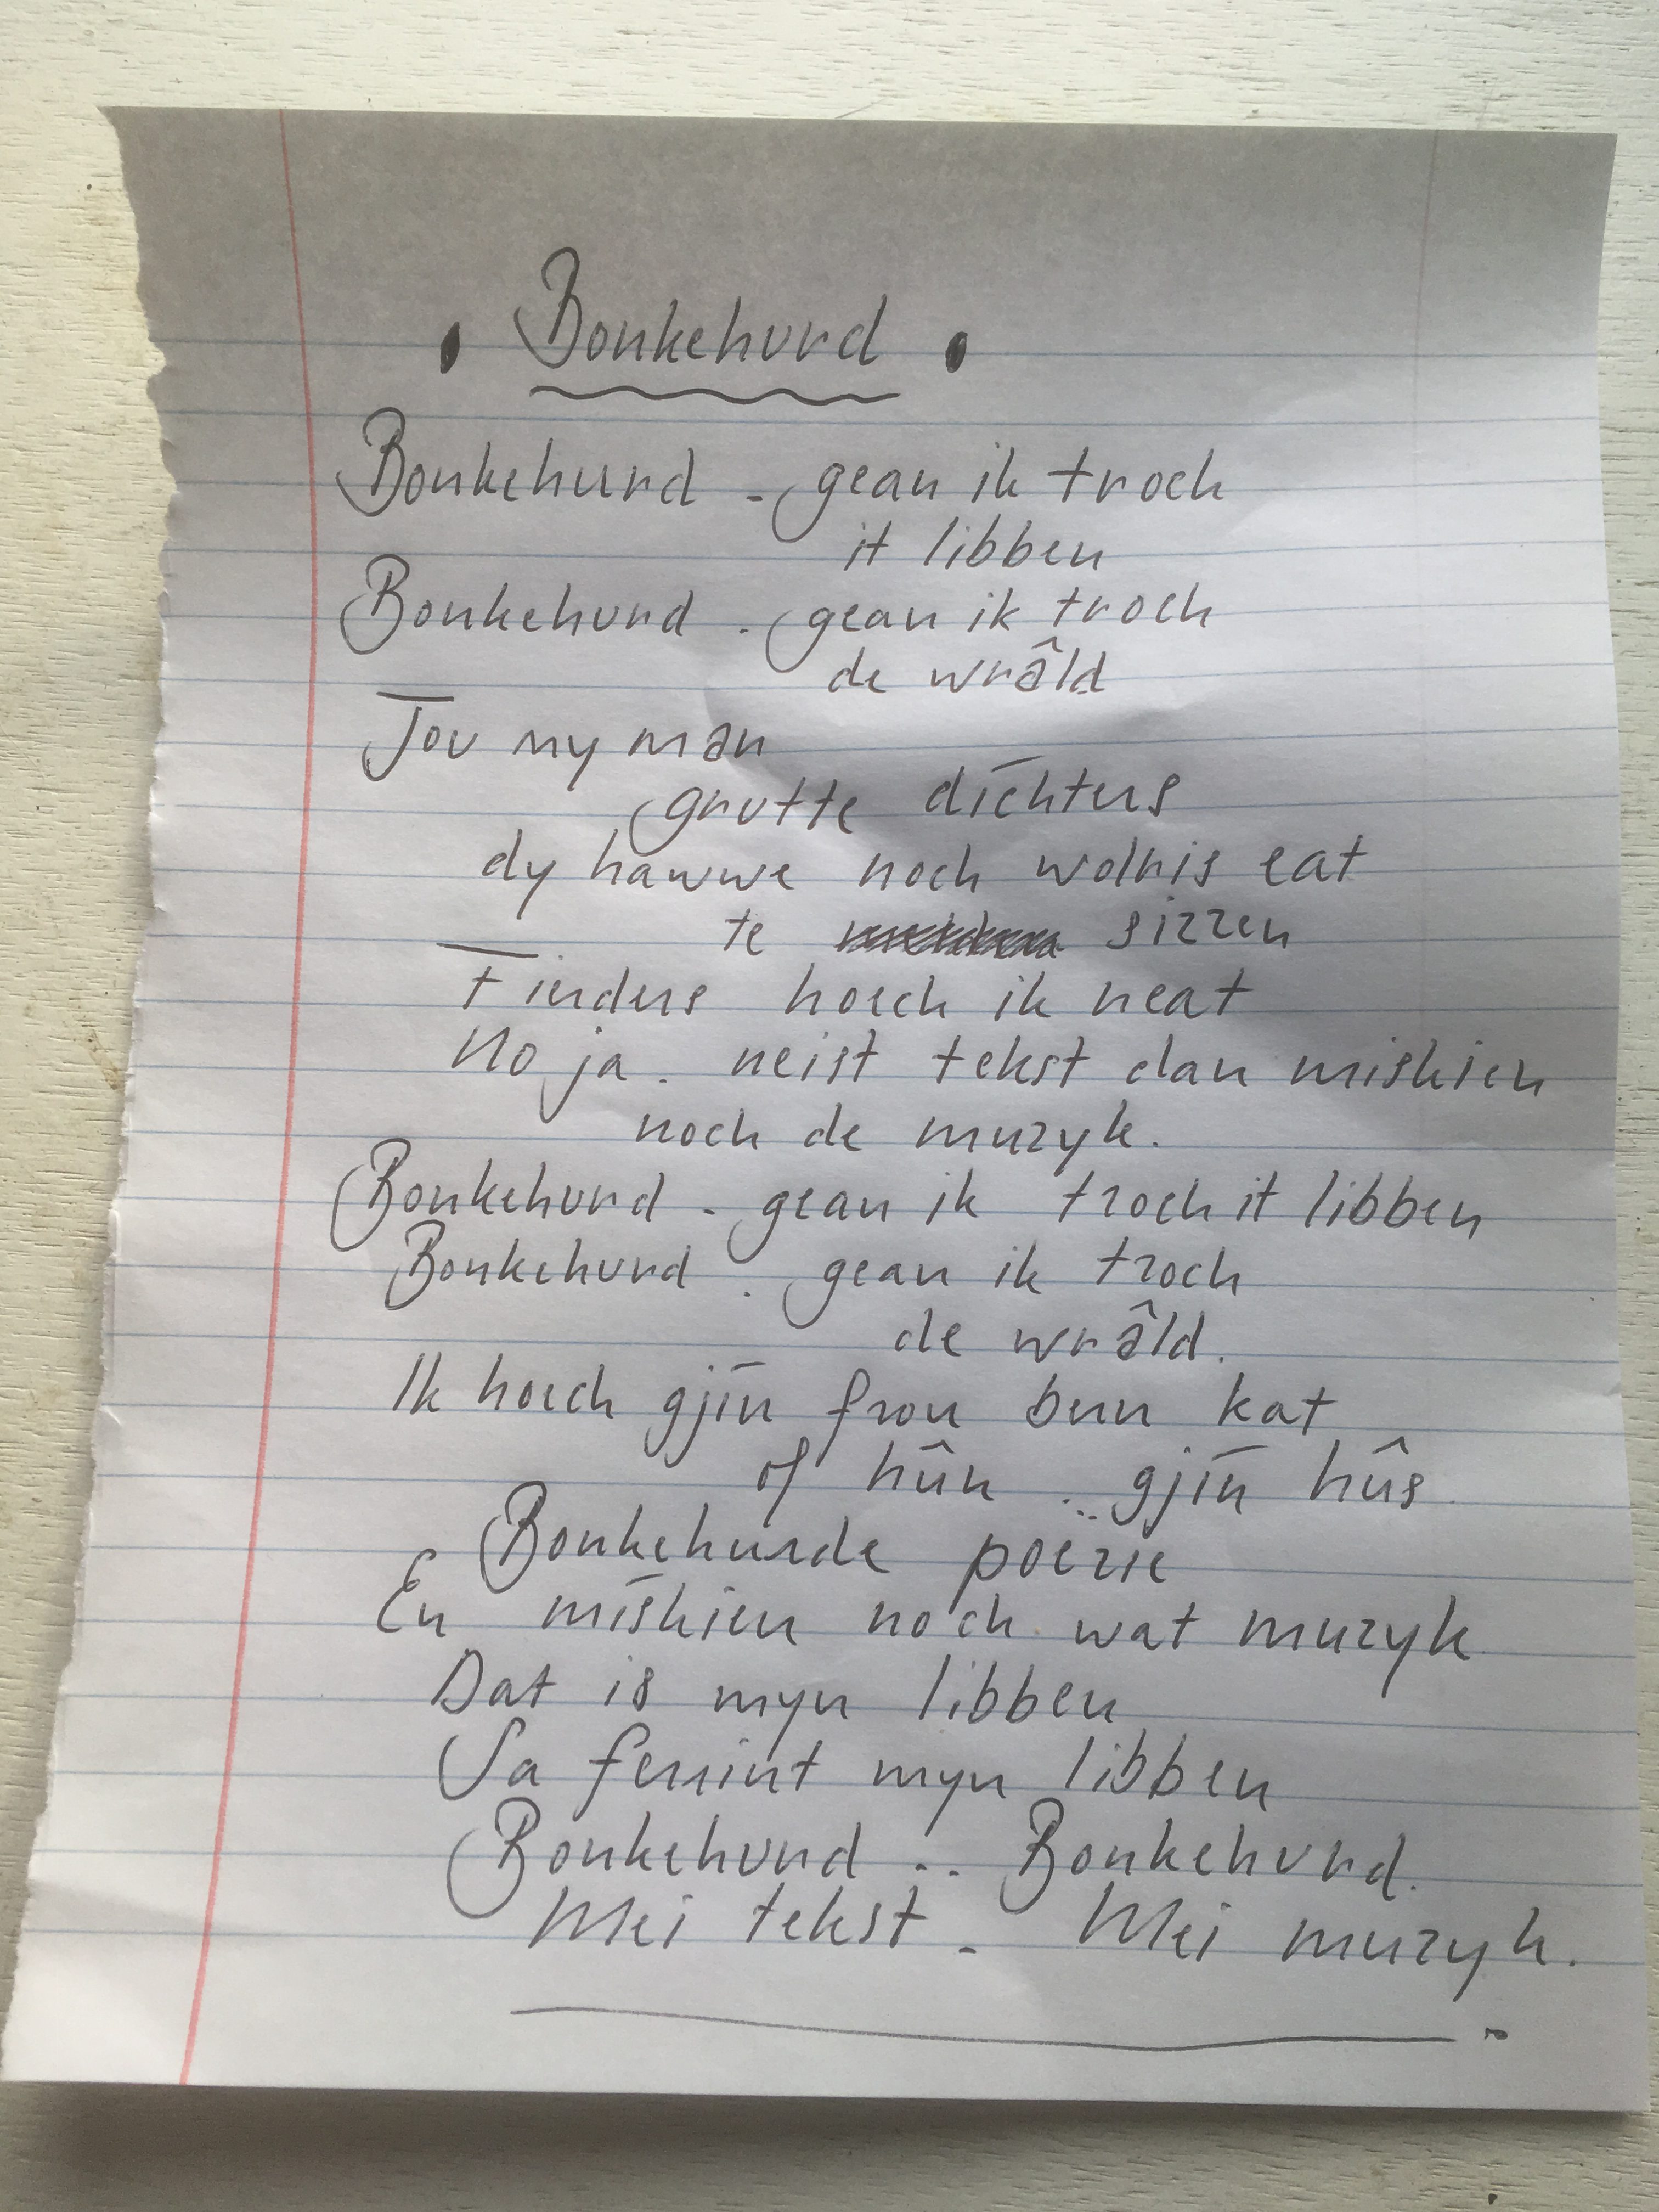 Bonkehurd
Bonkehurd - gean ik troch
it libben
Bonkehurd. gean ik troch
de wrâld
Jou my man
grutte dichters
dy hawwe noch wolris eat
te sizzen
Fierders hoech ik neat
No ja. neist tekst dan miskien
noch de muzyk.
Bonkehurd - gean ik troch it libben
Bonkehurd. gean ik troch
de wrâld.
Ik hoech gjin frou bern kat
of hûn .. gjin hûs.
Bonkehurde poëzie
En miskien noch wat muzyk
Dat is myn libben
Sa ferrint myn libben
Bonkehurd .. Bonkehurd.
Mei tekst - Mei muzyk.